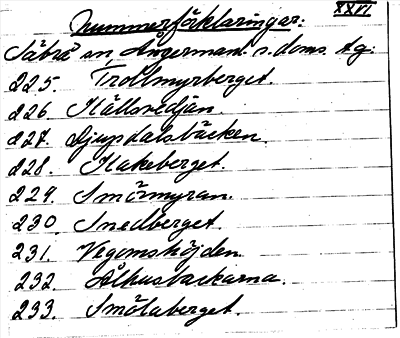 XXVI
Nummerförklaringar:
Säbrå sn, Ångermanl. s. doms. tg:
225. Trollmyrberget.
226. Hällsvedjan
227. Djupdalsbäcken.
228. Hakeberget.
229. Smörmyran.
230. Snedberget.
231. Vegomshöjden.
232. Ålhusbackarna.
233. Smölaberget.